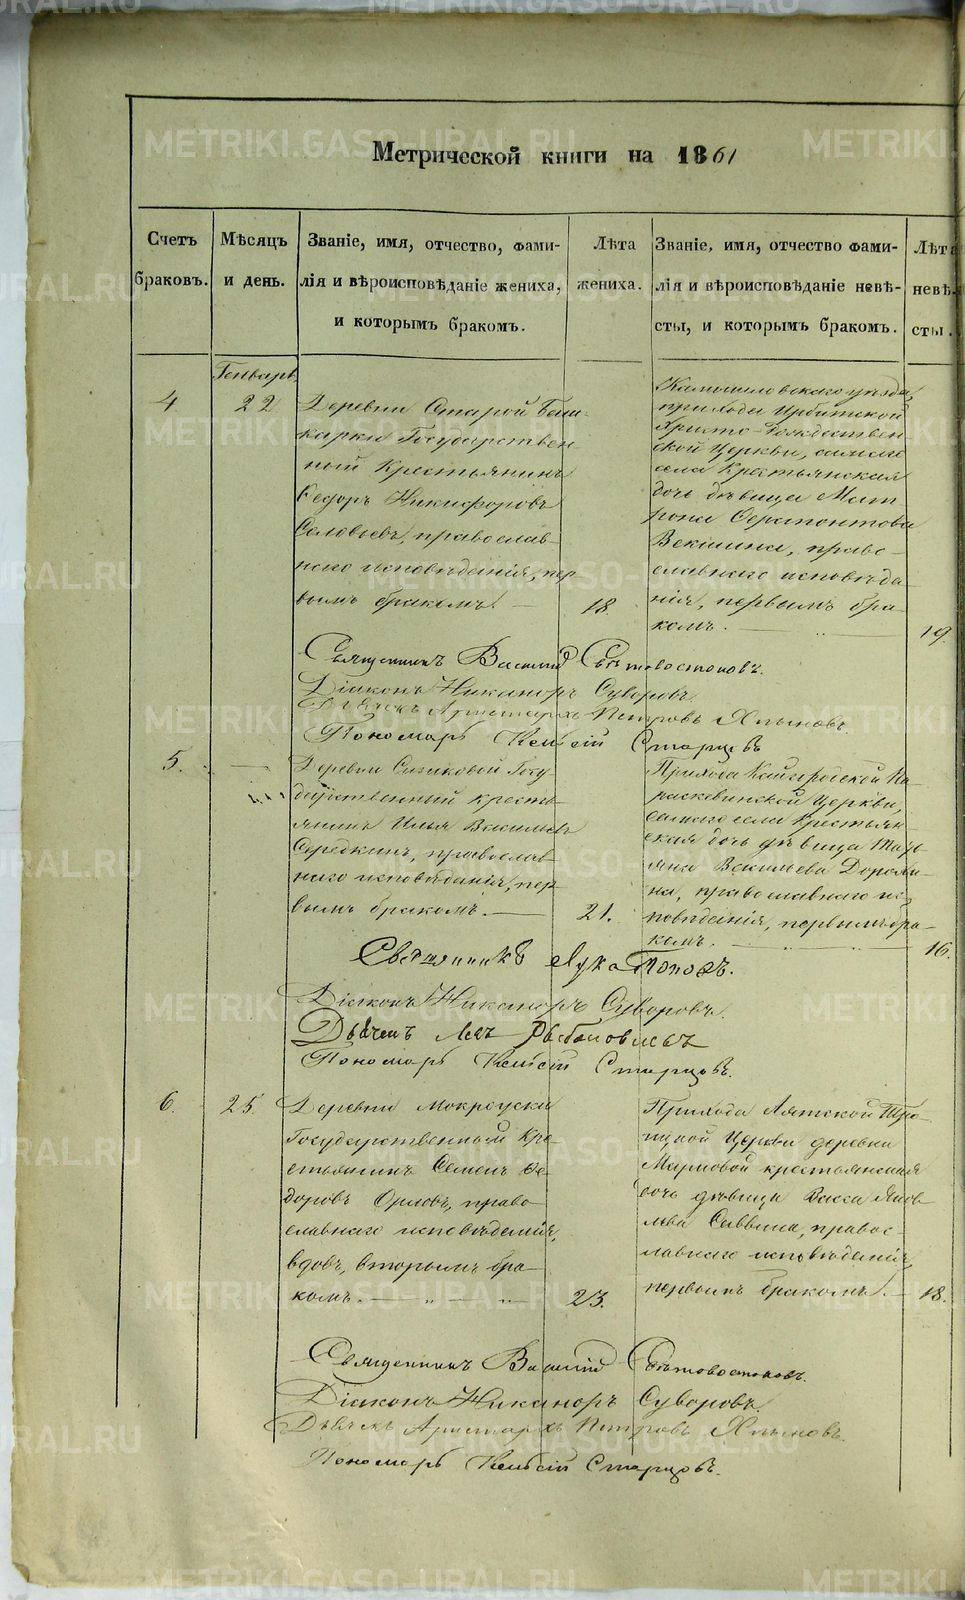 Метрической книги на 1861
Счетъ браковъ.
Мѣсяцъ и день.
Званіе, имя, отчество, фами-
лія и вѣроисповѣданіе жениха,
и которымъ бракомъ.
Лѣта жениха.
Званіе, имя, отчество фами-
лія и вѣроисповѣданіе невѣ-
сты, и которымъ бракомъ.
Лѣта невѣ-
сты.
Генварь
4
22
Деревни Старой
Государствен
ный Крестьянинъ
Ѳедоръ Никифоровъ
Соловьевъ, православ-
наго исповѣданія, пер
вымъ бракомъ.
18.
Камышловскаго уѣзда,
прихода Ирбитской
Христо-Рождествен
ской Церкви, самаго
села Крестьянская
дочь дѣвица Мат
рона
Векшина, право-
славнаго исповѣда
нія, первымъ бра-
комъ.
19.
Священникъ Василій Свѣтовостоковъ.
Діаконъ Никаноръ Суворовъ
Дьячекъ Аристархъ Петровъ Хлыновъ.
Пономарь Старцовъ
5.
Деревни Сизиковой Госу
дарственный кресть
янинъ Илья Васильевъ
Середкинъ, православ
наго исповѣданія, пер
вымъ бракомъ.
21.
Прихода Кайгородской Па
раскевинской Церкви,
самаго села крестьян
ская дочь дѣвица Марь
яна Васильева
на, православнаго ис
повѣданія, первымъ бра-
комъ.
16.
Священникъ Лука Поповъ.
Діаконъ Никаноръ Суворовъ.
Дьячекъ Левъ
Пономарь Старцовъ.
6.
25.
Деревни Мокроуски
Государственный Кре
стьянинъ Семенъ Ѳе
доровъ Орловъ, право
славнаго исповѣданія,
вдовъ, вторымъ бра-
комъ.
23.
Прихода Аятской Тро-
ицкой Церкви деревни
крестьянская
дочь дѣвица Васса Яков
лева Саввина, правос-
лавнаго исповѣданія,
первымъ бракомъ.
18.
Священникъ Василій Свѣтовостоковъ.
Діаконъ Никаноръ Суворовъ.
Дьячекъ Аристархъ Петровъ Хлыновъ.
Пономарь Старцовъ.
METRIKI.GASO-URAL.RU